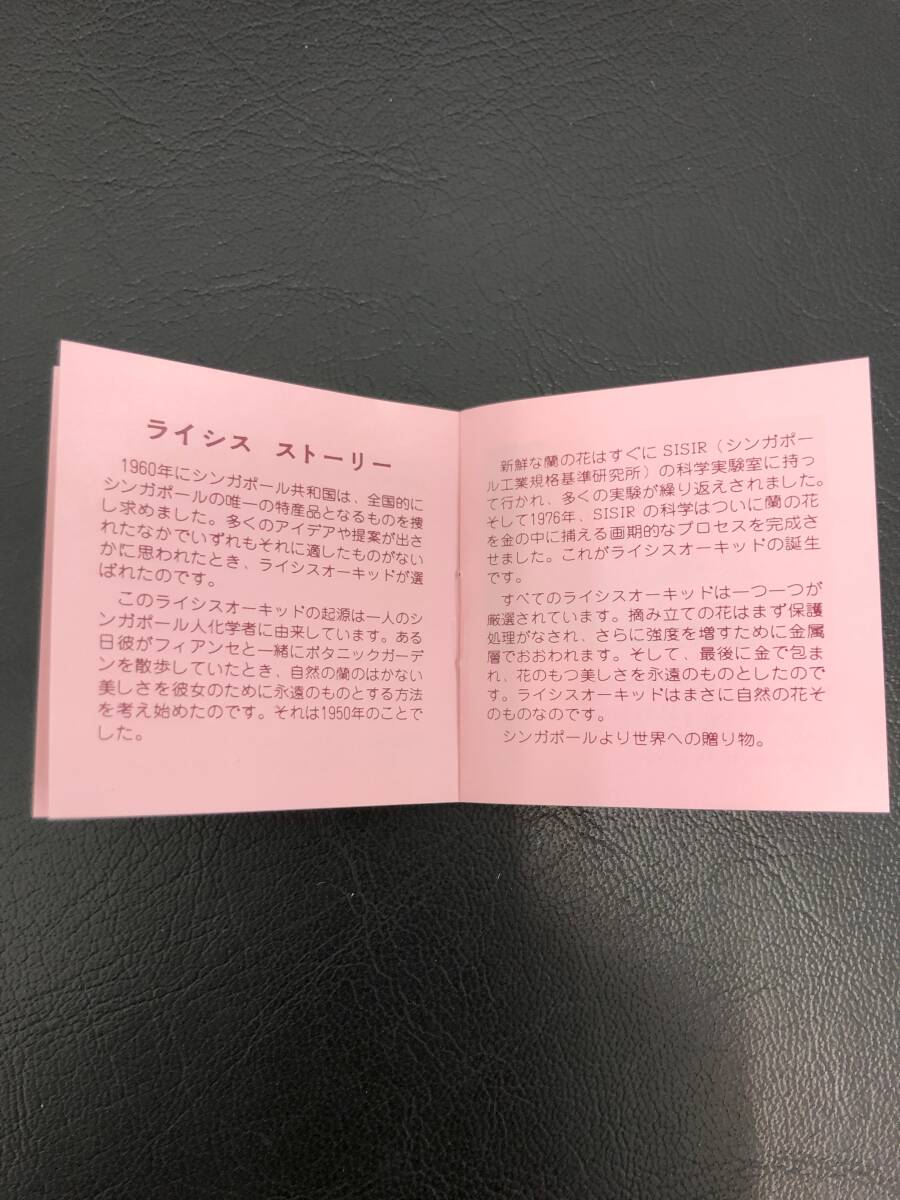 ライシス ストーリー
1960年にシンガポール共和国は、全国的に
シンガポールの唯一の特産品となるものを捜
し求めました。多くのアイデアや提案が出さ
れたなかでいずれもそれに適したものがない
かに思われたとき、ライシスオーキッドが選
ばれたのです。
このライシスオーキッドの起源は一人のシ
ンガポール人化学者に由来しています。ある
日彼がフィアンセと一緒にボタニックガーデ
ンを散歩していたとき、自然の蘭のはかない
美しさを彼女のために永遠のものとする方法
を考え始めたのです。それは1950年のことで
した。
新鮮な蘭の花はすぐに SISIR（シンガポー
ル工業規格基準研究所）の科学実験室に持っ
て行かれ、多くの実験が繰り返えされました。
そして1976年、SISIR の科学はついに蘭の花
を金の中に捕える画期的なプロセスを完成さ
せました。これがライシスオーキッドの誕生
です。
すべてのライシスオーキッドは一つ一つが
厳選されています。摘み立ての花はまず保護
処理がなされ、さらに強度を増すために金属
層でおおわれます。そして、最後に金で包ま
れ、花のもつ美しさを永遠のものとしたので
す。ライシスオーキッドはまさに自然の花そ
のものなのです。
シンガポールより世界への贈り物。